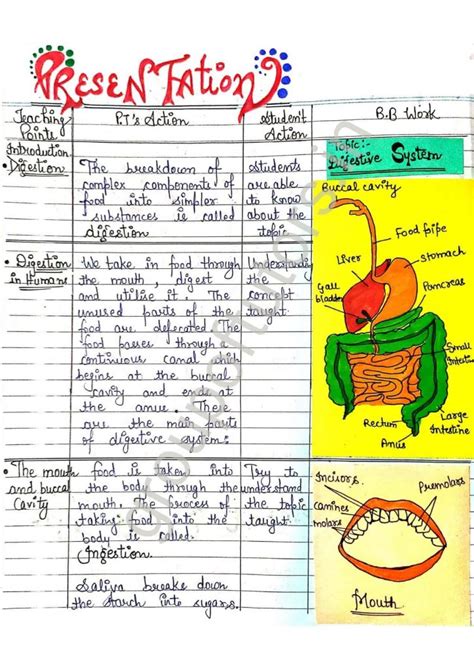 PRESENTATION
Teaching Points
P.T's Action
Student Action
B.B Work
Introduction
• Digestion
The breakdown of
complex components of
food into simpler
substances is called
digestion
Students
are able
to know
about the
topic
Topic:-
Digestive System
Buccal cavity
Food pipe
Liver
stomach
Gall
bladder
Pancreas
Small
Intestine
Large
Intestine
Rectum
Anus
• Digestion
in Humans
We take in food through
the mouth, digest
and utilize it. The
unused parts of the
food are defecated. The
food passes through a
continuous canal which
begins at the buccal
cavity and ends at
the anus. There
are the main parts
of digestive system:
Understand
the
concept
taught
• The mouth
and buccal
cavity
food is taken into
the body through the
mouth. The process of
taking food into the
body is called.
Ingestion.
Saliva breaks down
the starch into sugars.
Try to
understand
the topic
taught.
Incisors.
Premolars
canines
molars
Mouth